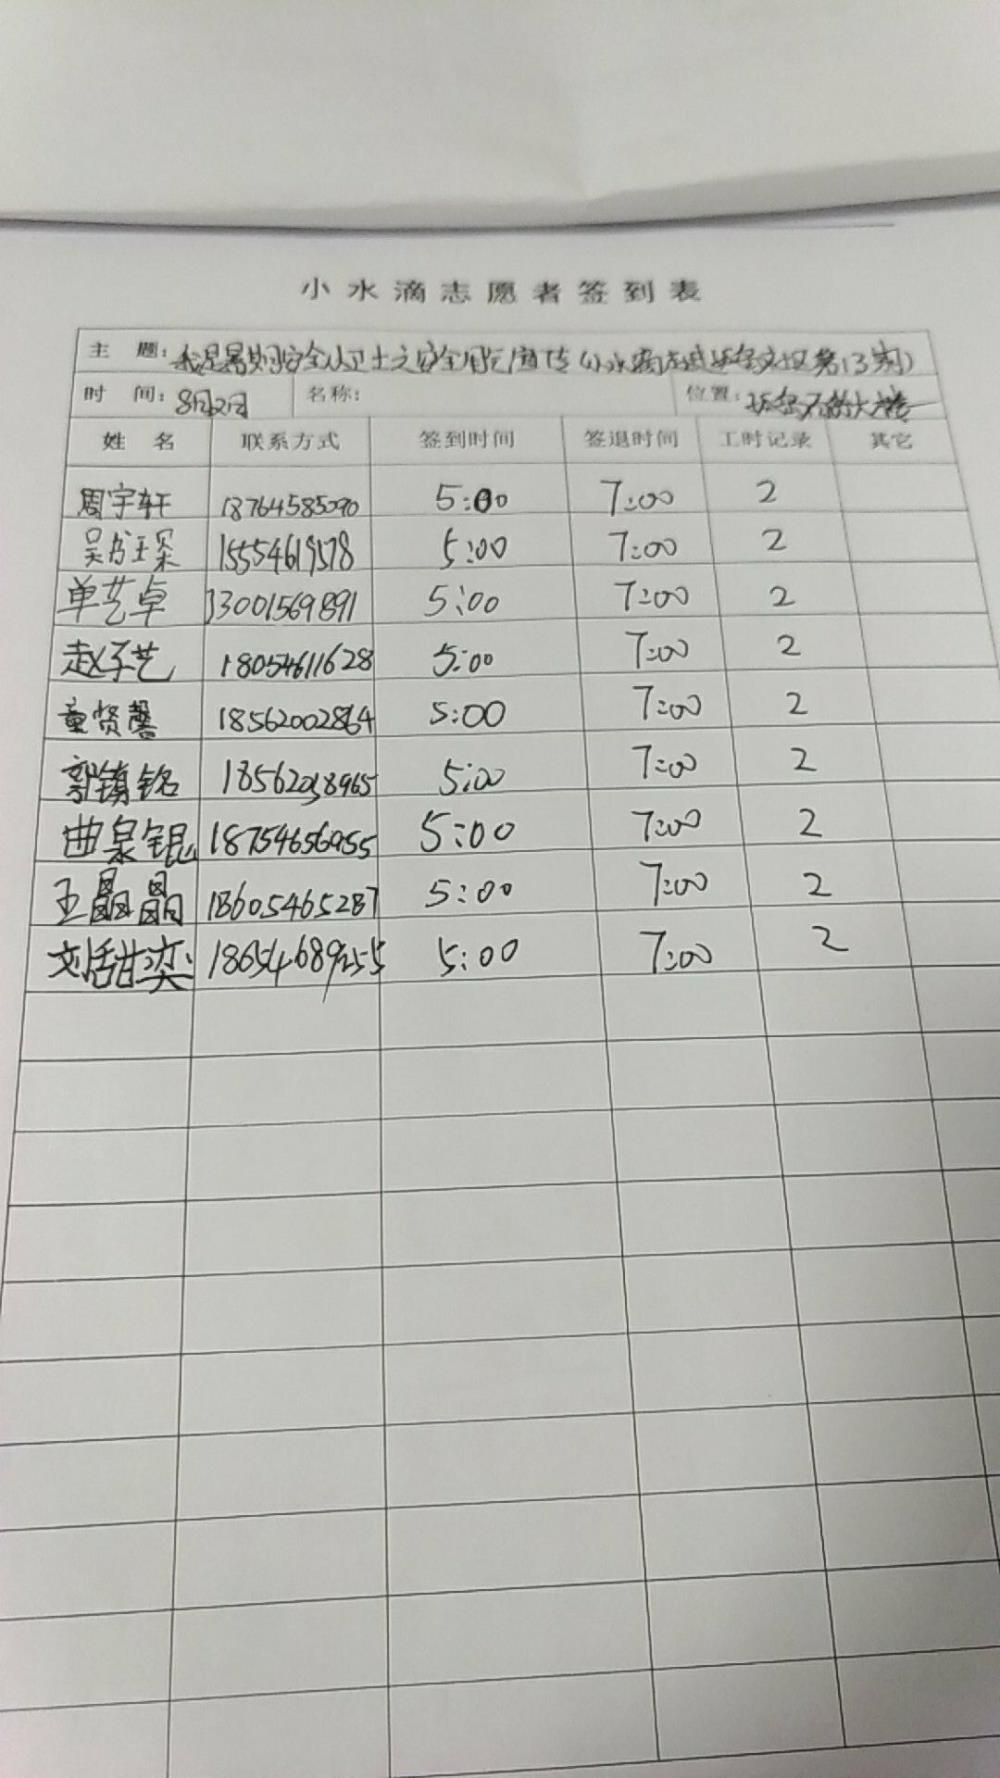 小水滴志愿者签到表
主 题: 我是暑期安全小卫士之安全用气宣传(小水滴 第13期)
时 间: 8月2日 名称: 位置:
姓 名 联系方式 签到时间 签退时间 工时记录 其它
周宇轩 18764585090 5:00 7:00 2
吴 15554619578 5:00 7:00 2
单艺卓 13001569891 5:00 7:00 2
赵子艺 18054611628 5:00 7:00 2
童贤馨 18562002864 5:00 7:00 2
郭镇铭 18562038965 5:00 7:00 2
曲泉锟 18754656955 5:00 7:00 2
王晶晶 18605465287 5:00 7:00 2
刘恬奕 18654689255 5:00 7:00 2